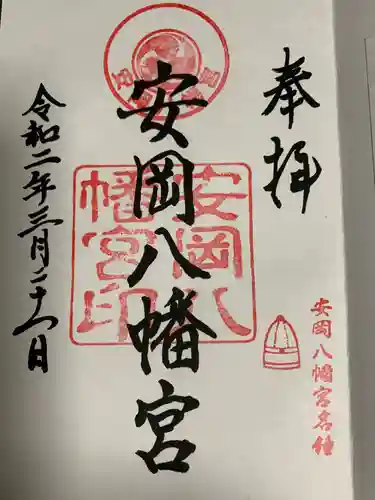 奉拝
安岡八幡宮
安岡八
幡宮印
安岡八幡宮名鐘
令和二年三月二十一日